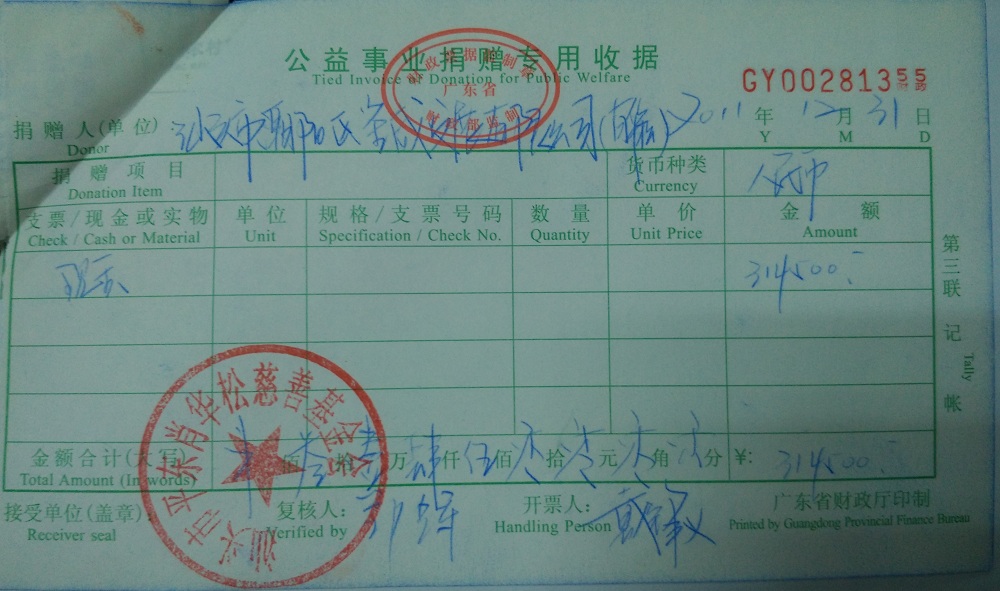 公益事业捐赠专用收据
Tied Invoice of Donation for Public Welfare
广东省
GY00281355
捐赠人(单位) 2011年12月31日
Donor Y M D
捐赠项目 货币种类 人民币
Donation Item Currency
支票/现金或实物 单位 规格/支票号码 数量 单价 金额
Check / Cash or Material Unit Specification / Check No. Quantity Unit Price Amount
现金 314500.
第三联 记帐
Tally
金额合计(大写) 佰叁拾壹万肆仟伍佰零拾零元零角零分 ¥: 314500.
Total Amount (In words)
接受单位(盖章): 复核人: 开票人: 广东省财政厅印制
Receiver seal Verified by Handling Person Printed by Guangdong Provincial Finance Bureau
汕头市平东肖华松慈善基金会